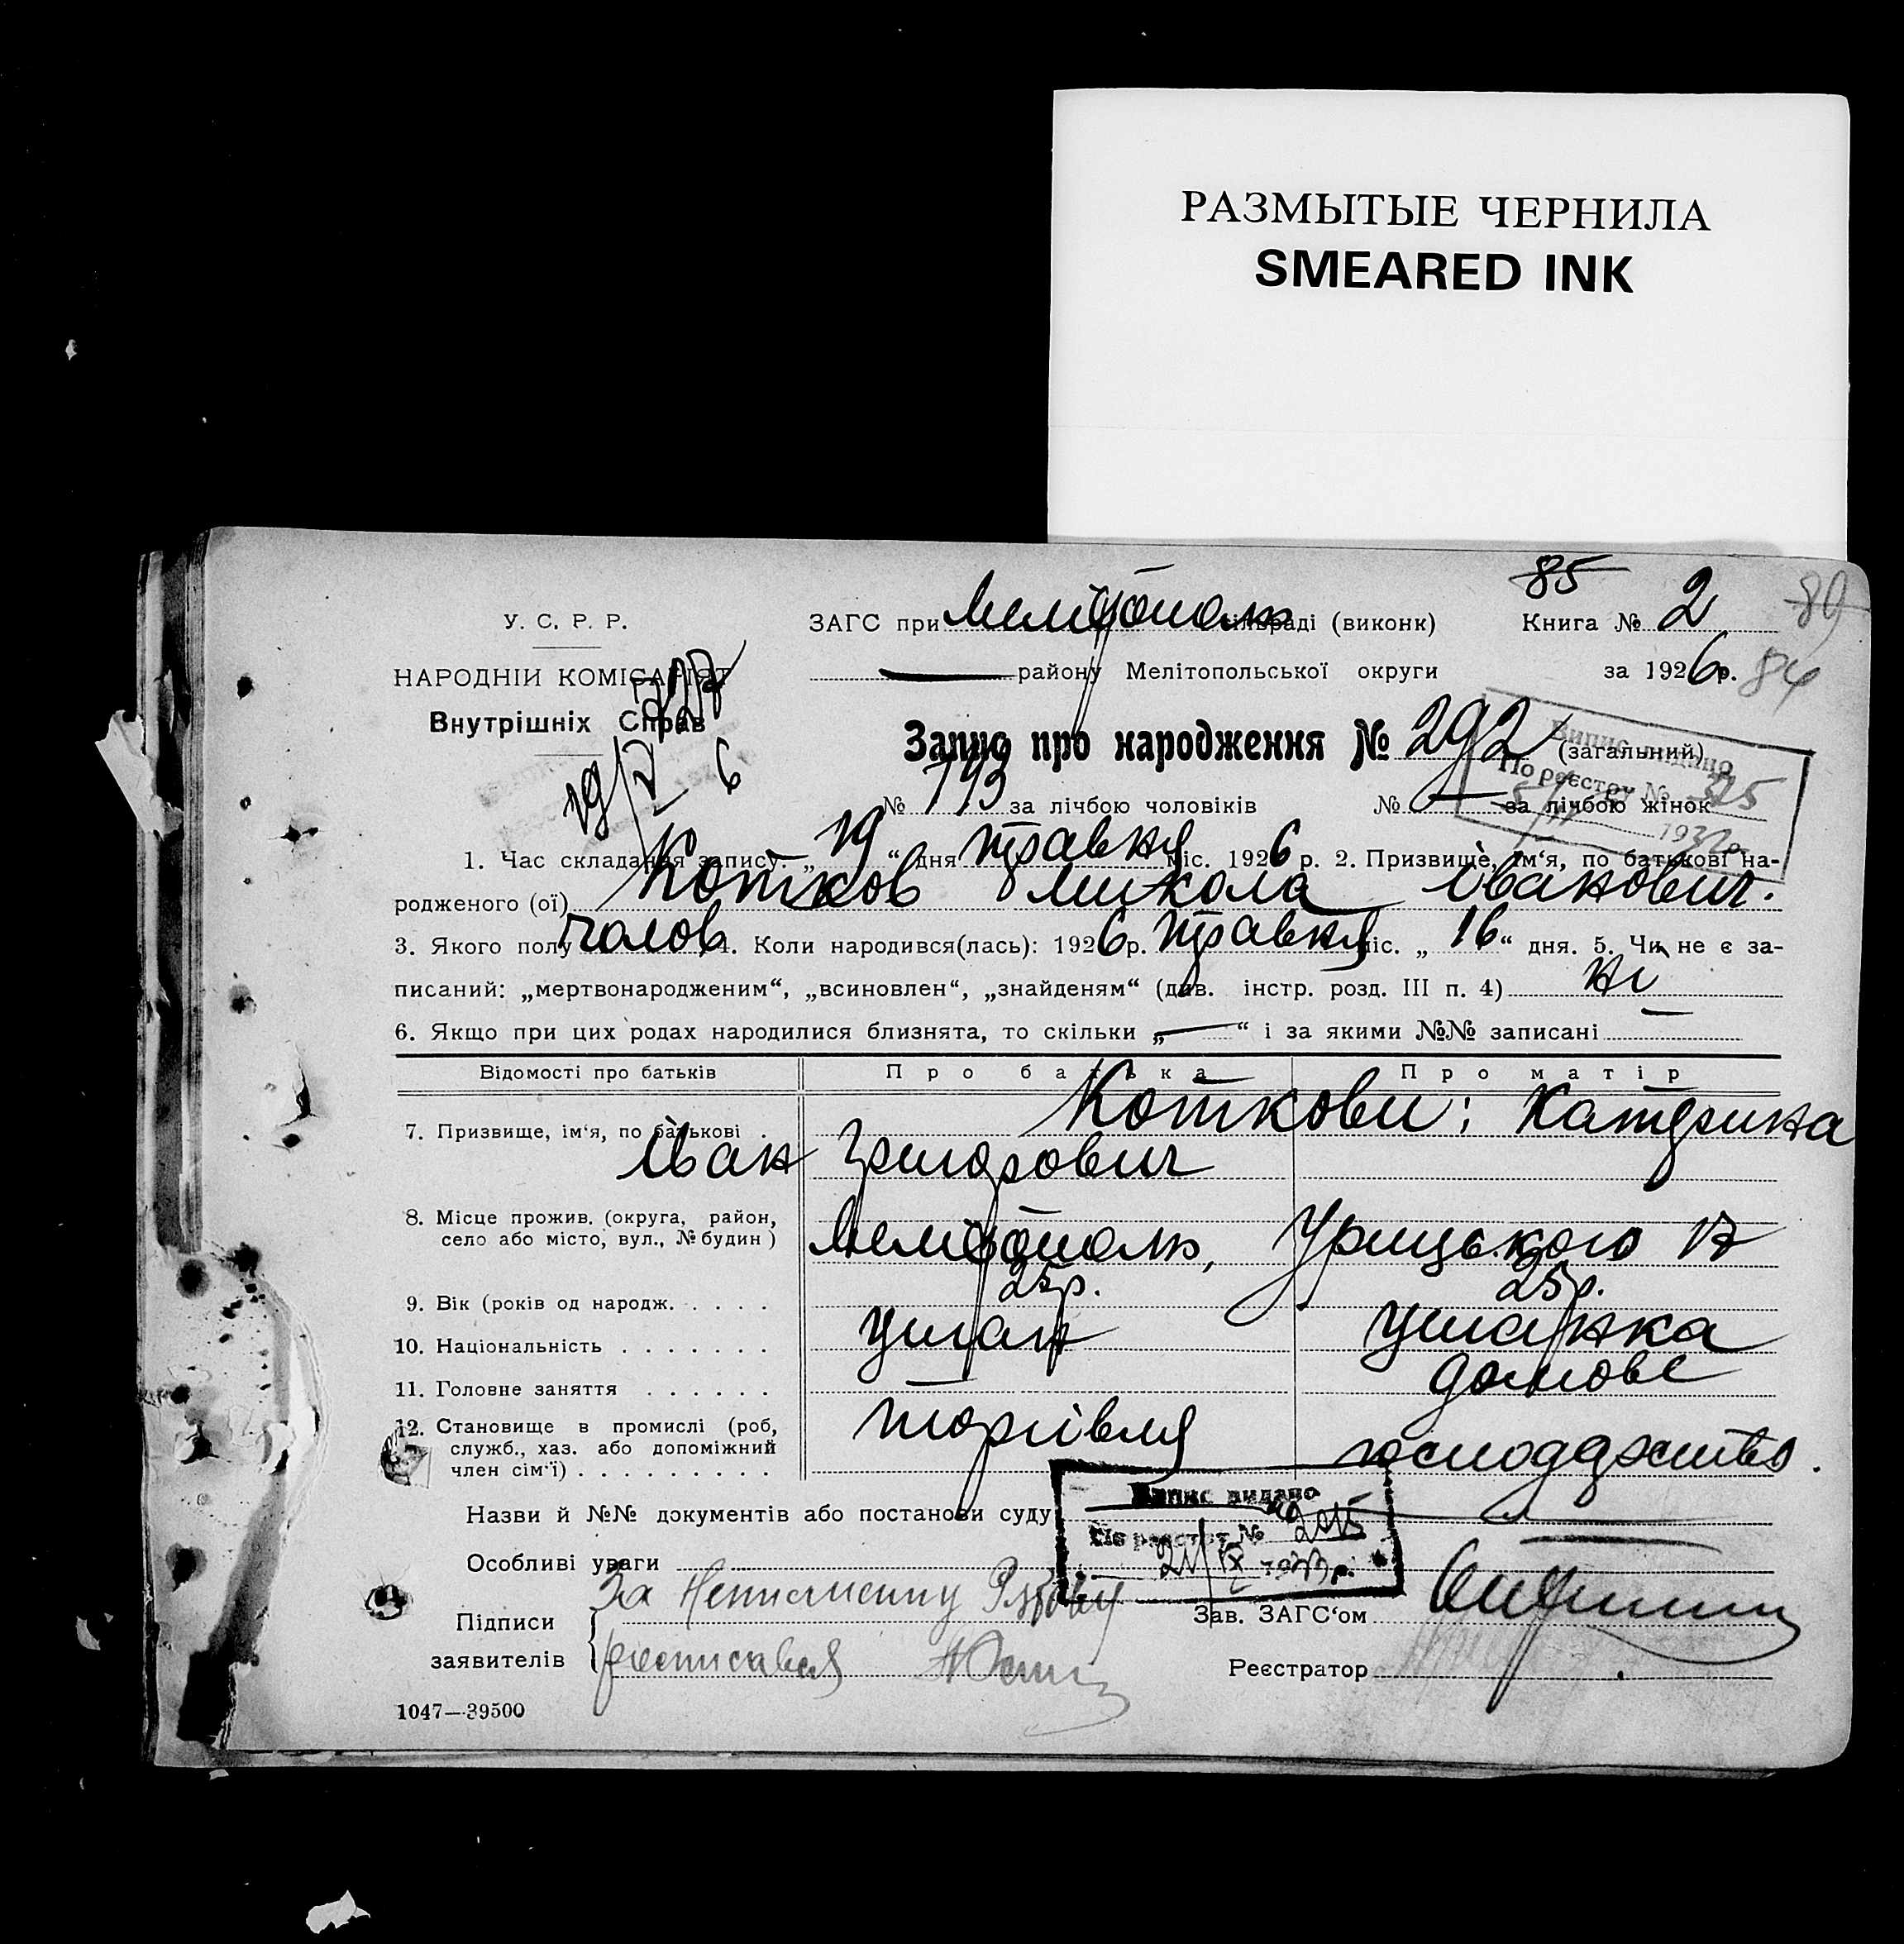 РАЗМЫТЫЕ ЧЕРНИЛА
SMEARED INK
85
У. С. Р. Р.
ЗАГС при Мелітополь сільраді (виконк)
Книга № 2
89
НАРОДНІЙ КОМІСАРІЯТ
району Мелітопольської округи
за 1926 р.
84
Внутрішніх Справ
Запис про народження № 292 (загальний)
Випис видано
По реєстру № 325
1932 р.
19/V 6
№ 143 за лічбою чоловіків № — за лічбою жінок
1. Час складання запису: „19“ дня травня міс. 1926 р. 2. Призвище, ім'я, по батькові на-
родженого (ої) Котков Микола Іванович.
3. Якого полу чолов 4. Коли народився(лась): 1926 р. травня міс. „16“ дня. 5. Чи не є за-
писаний: „мертвонародженим“, „всиновлен“, „знайденям“ (див. інстр. розд. III п. 4) ні
6. Якщо при цих родах народилися близнята, то скільки „—“ і за якими №№ записані —
Відомості про батьків Про батька Про матір
7. Призвище, ім'я, по батькові . Коткови: Катерина
Іван Григорович
8. Місце прожив. (округа, район,
село або місто, вул., № будин) Мелітополь, Урицького 17
9. Вік (років од народж. . . . . 25р. 25р.
10. Національність . . . . . . . Укра
11. Головне заняття . . . . . . домове
12. Становище в промислі (роб,
служб., хаз. або допоміжний
член сім'ї) . . . . . . . . . торгівля господарство.
Назви й №№ документів або постанови суду
Випис видано
По реєстру № 2015
21/IX 1933 р.
Особливі уваги
За неписьменну
Підписи
заявителів
росписався
Зав. ЗАГС'ом
Реєстратор
1047—39500